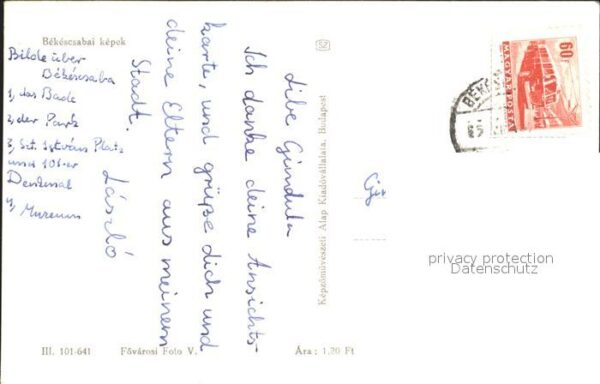 Békéscsabai képek
Bilde über
Békéscsaba
1, das Bade
2, der Park
3, Szt. István Platz
und 101-er
Denkmal
4, Muzeum
Libe Gundula
Ich danke deine Ansichts-
karte, und grüße dich und
deine Eltern aus meinem
Stadt.
László
Képzőművészeti Alap Kiadóvállalata, Budapest
Ill. 101-641
Fővárosi Foto V.
Ára: 1,20 Ft
60f
MAGYAR POSTA
BÉKÉS
privacy protection
Datenschutz